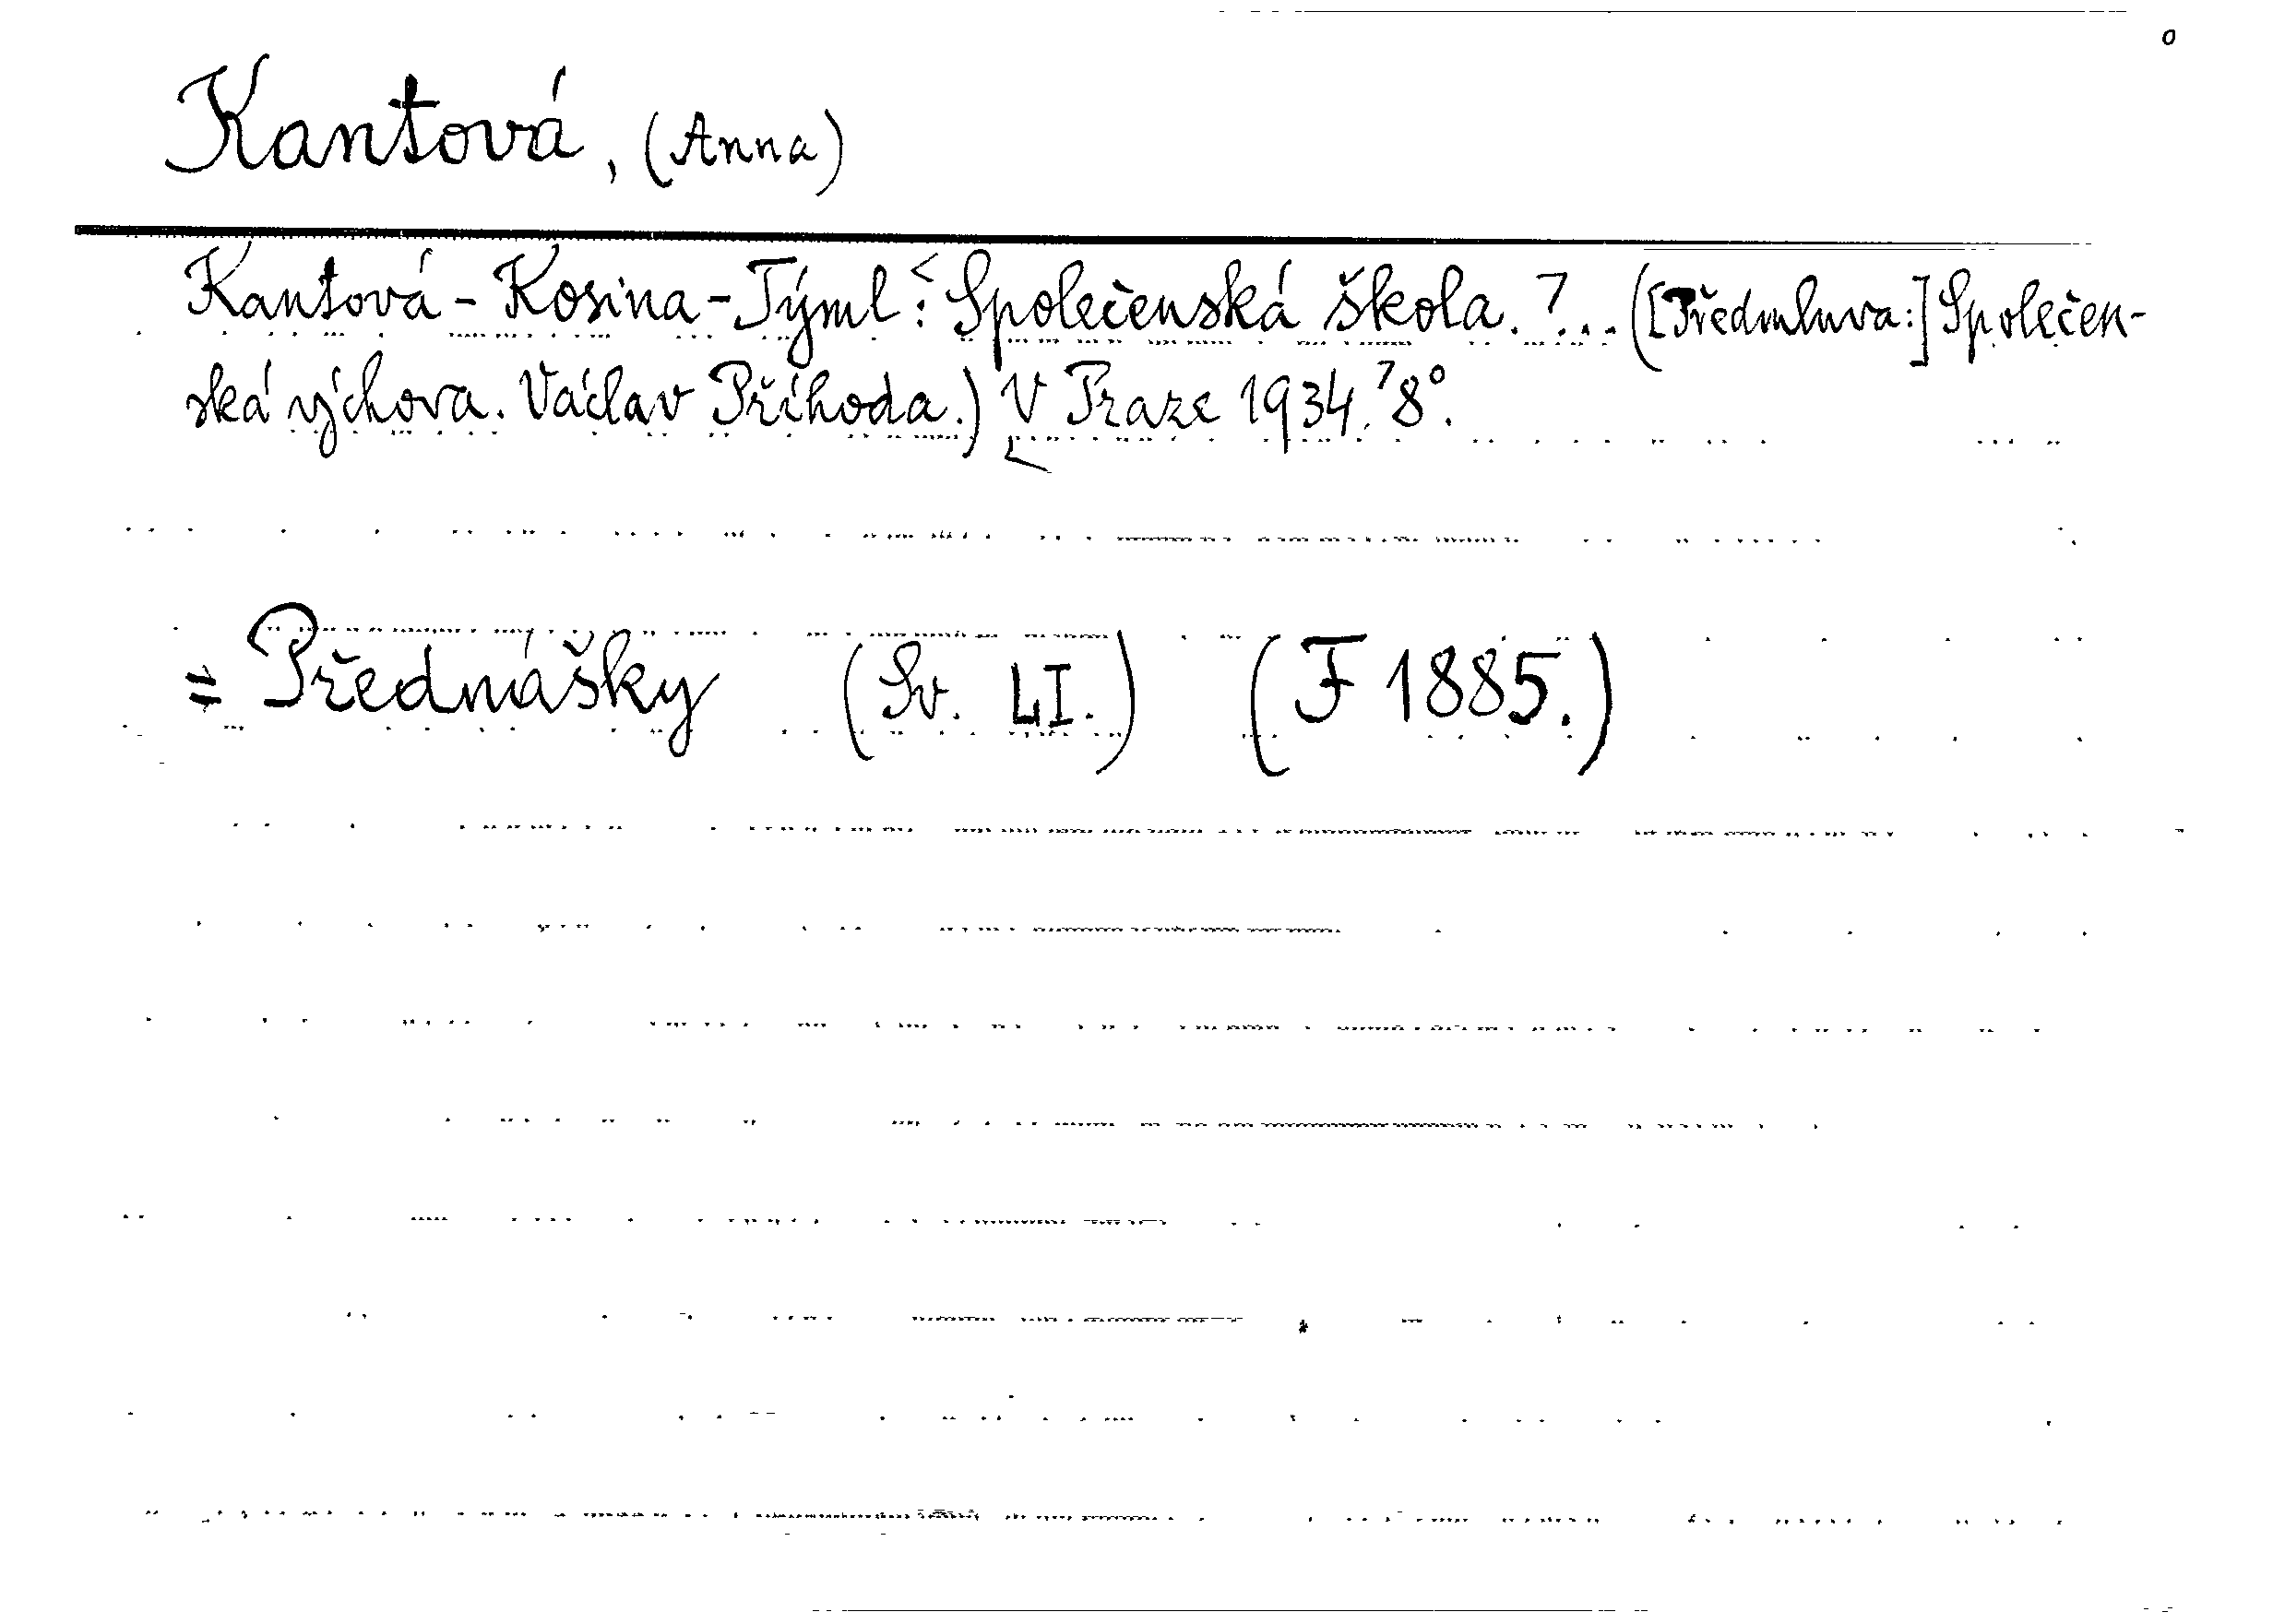 o
Kantová, (Anna)
Kantová - Kosina - Týml: Společenská škola. ... ([Předmluva:] Společen-
ská výchova. Václav Příhoda.) V Praze 1934. 8°.
= Přednášky (Sv. LI.) (F 1885.)